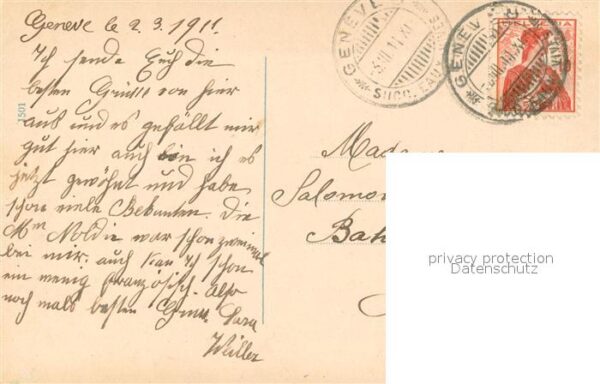 Geneve le 2. 3. 1911.
Ich sende Euch die
besten Grüsse von hier
aus und es gefällt mir
gut hier auch bin ich es
jetzt gewöhnt und habe
schon viele Bekanten. Die
Mme Noldie war schon zweimal
bei mir. auch kan ich schon
ein wenig französisch. Also
noch mals besten Gruss. Sara
Weiller
1501
GENEVE
SUCC. EAUX
GENEVE
HELVETIA
10
Madame
Salomon
Bah
privacy protection
Datenschutz